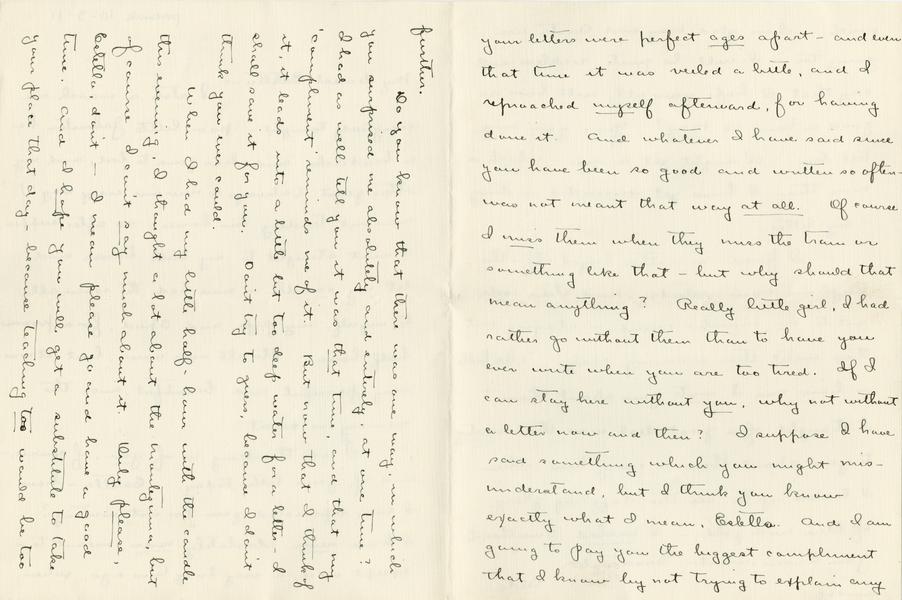 your letters were perfect ages apart – and even
that time it was veiled a little, and I
reproached myself afterward, for having
done it. And whatever I have said since
you have been so good and written so often –
was not meant that way at all. Of course
I miss them when they miss the train or
something like that – but why should that
mean anything? Really little girl, I had
rather go without them than to have you
ever write when you are too tired. If I
can stay here without you, why not without
a letter now and then? I suppose I have
said something which you might mis-
understand, but I think you know
exactly what I mean, Estella. And I am
going to pay you the biggest compliment
that I know by not trying to explain any
further.
Do you know that there was one way in which
you surprised me absolutely and entirely, at one time?
I had as well tell you it was that time, and that my
'compliment' reminds me of it. But now that I think of
it, it leads into a little bit too deep water for a letter – I
shall save it for you. Don't try to guess, because I don't
think you ever could.
When I had my little half-hour with the candle
this evening I thought a lot about the , but
of course I can't say much about it. Only please,
Estella, don't – I mean please go and have a good
time. And I hope you will get a substitute to take
your place that day – because teaching too would be too